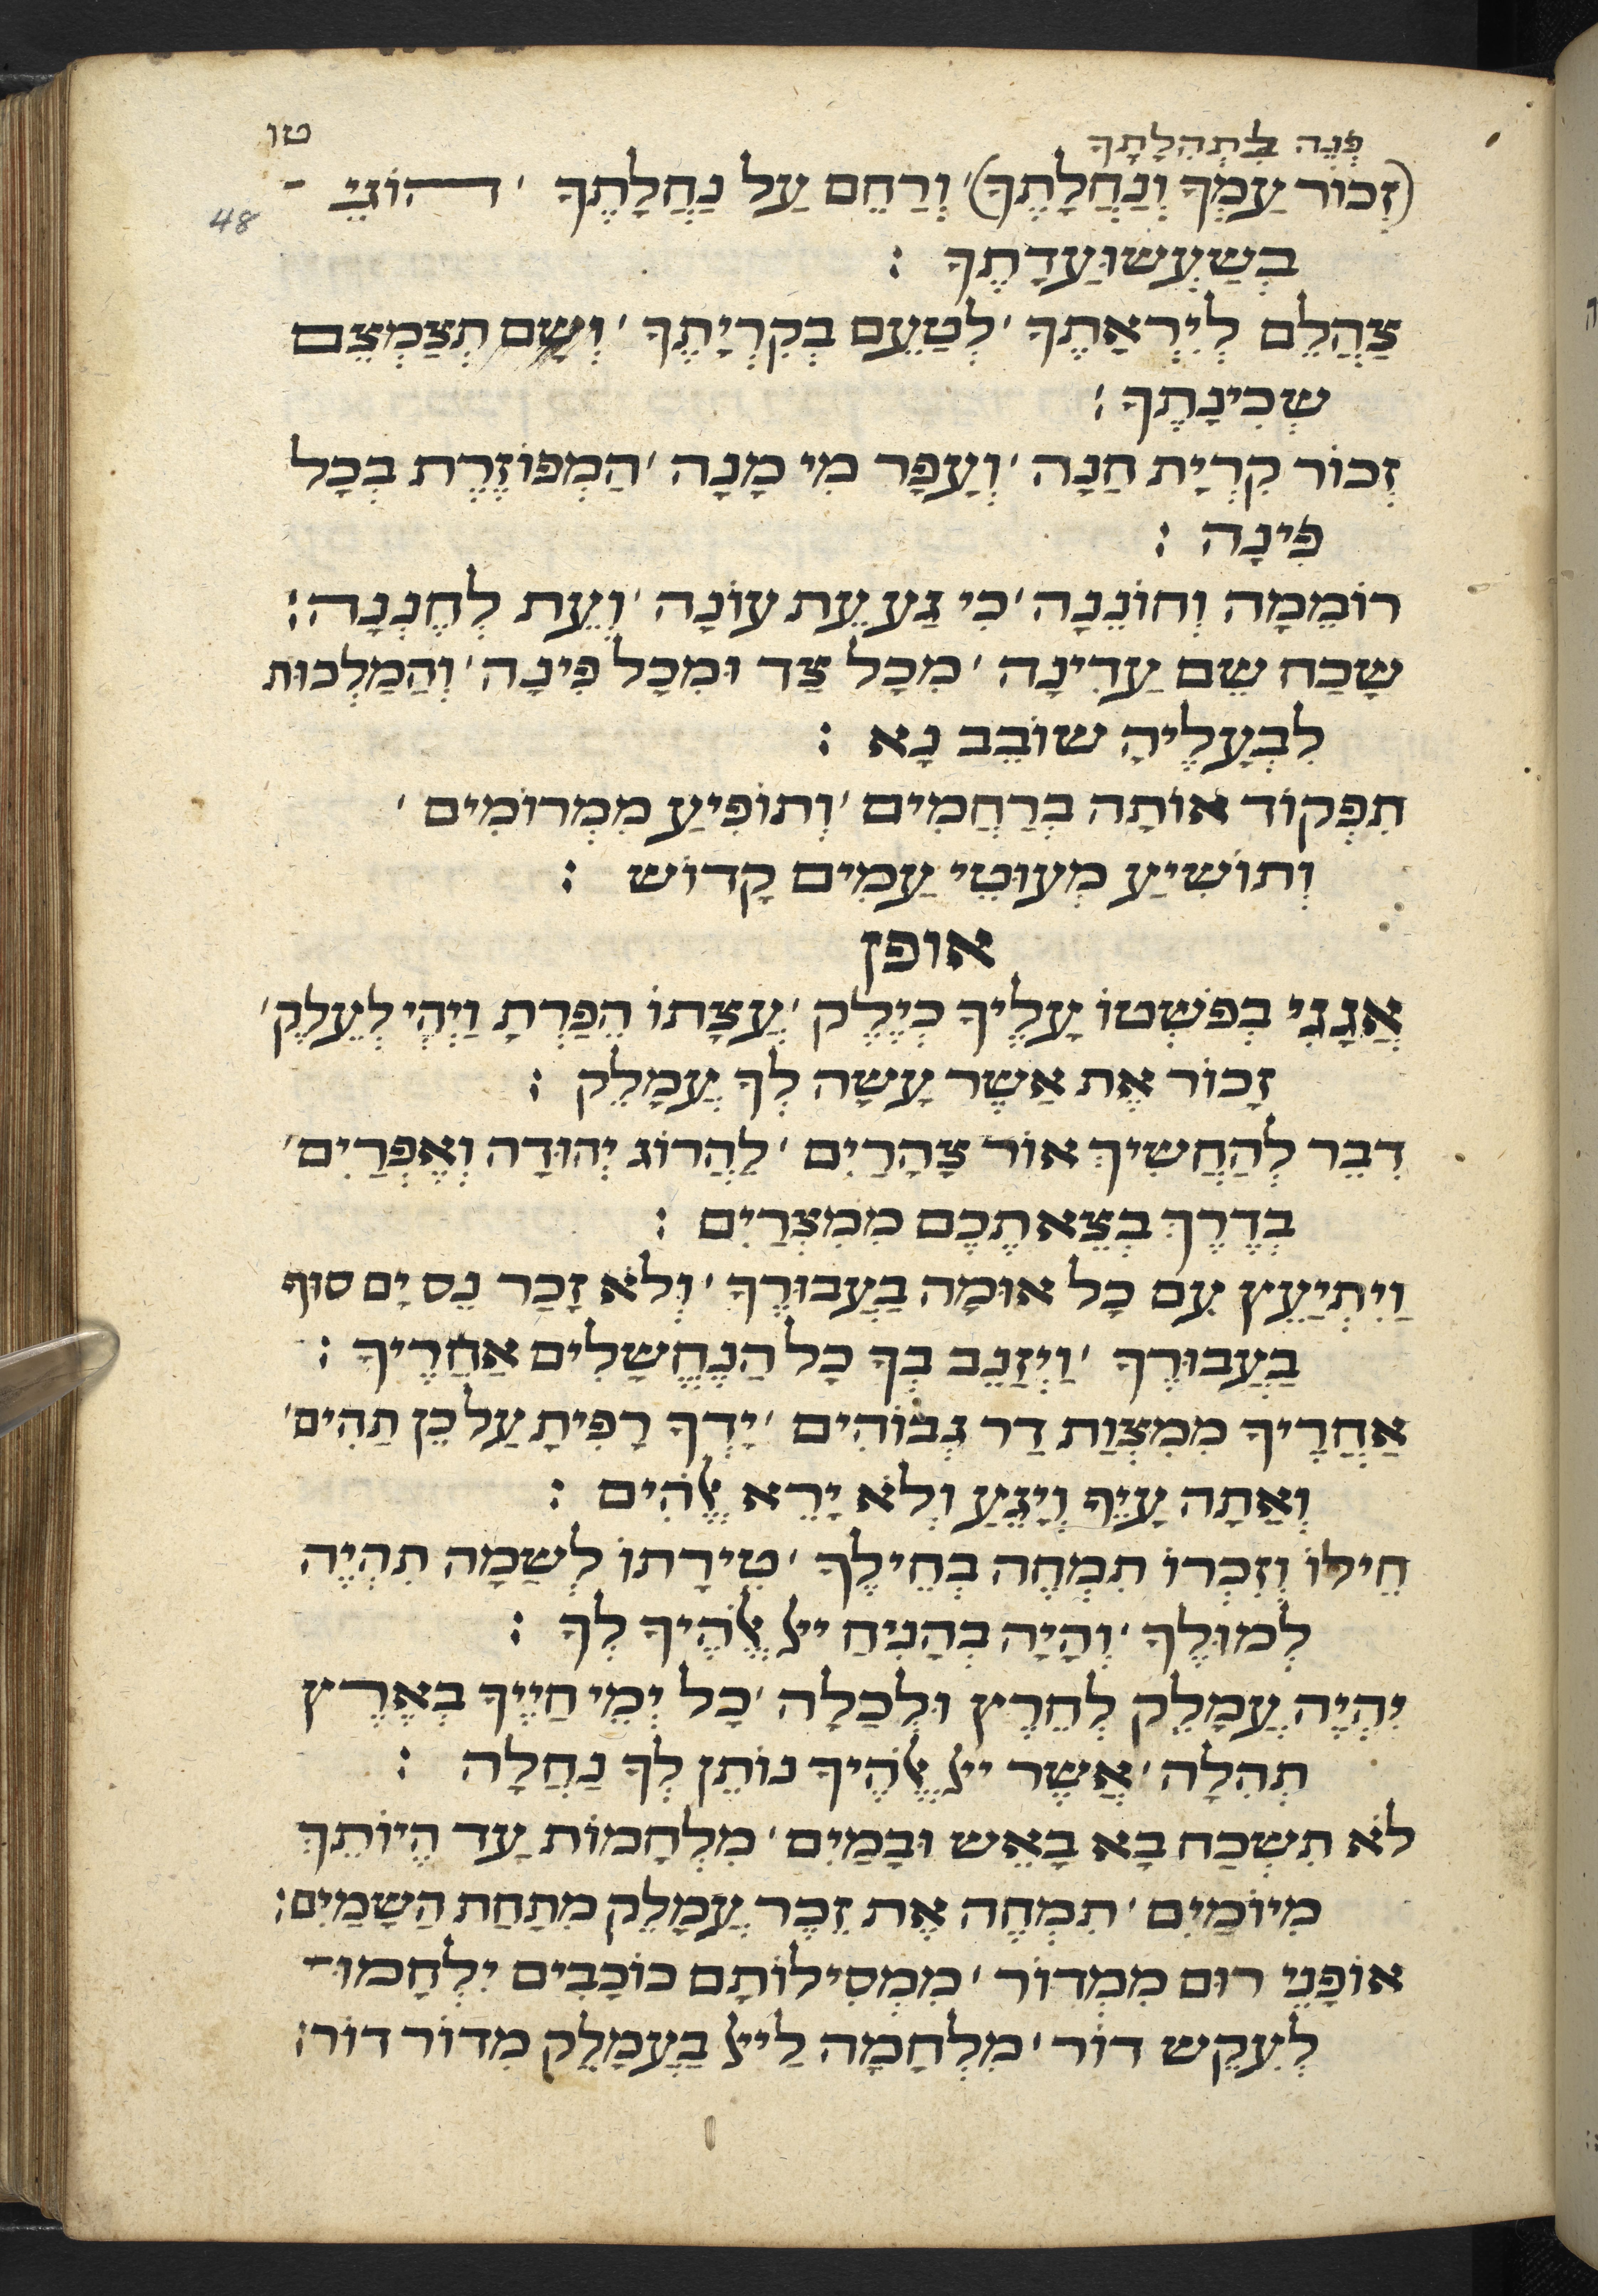 טו
פְנֵה בִּתְהִלָתָךְ
(זְכוֹר עַמְךָ וְנַחֲלָתֶךָ)׳ וְרַחֵם עַל נַחֲלָתֶךָ ׳ הוֹגֵי
48
בְשַעֲשוּעַ דָתֶךָ :
צַהֲלֵם לְיִרְאָתֶךָ ׳ לְטַעֵם בְקִרְיָתֶךָ ׳ וְשָם תְצַמְצֵם
שְכִינָתֶךָ :
זְכוֹר קִרְיַת חַנָה ׳ וְעָפָר מִי מָנָה ׳ הַמְפוֹזֶרֶת בְכָל
פִינָה :
רוֹמֵמָה וְחוֹנֵנָה ׳ כִי גַע עֵת עוֹנָה ׳ וְעֵת לְחֶנְנָה :
שָכַח שֵם עַדִינָה ׳ מִכָל צַד וּמִכָל פִינָה ׳ וְהַמַלְכוּת
לִבְעָלֶיהָ שוֹבֵב נָא :
תִפְקוֹד אוֹתָה בְרַחֲמִים ׳ וְתוֹפִיעַ מִמְרוֹמִים ׳
וְתוֹשִיעַ מְעוּטֵי עַמִים קָדוֹש :
אופן
אֲגָגִי בְפֹשְטוֹ עָלֶיךָ כְיֶלֶק ׳ עֲצָתוֹ הֵפַרְתָ וַיְהִי לְעֵלֶק ׳
זָכוֹר אֶת אַשֶר עָשָה לְךָ עֲמָלֵק :
דִבֵר לְהַחֲשִיךְ אוֹר צָהֳרַיִם ׳ לַהֲרוֹג יְהוּדָה וְאֶפְרַיִם ׳
בְדֶרֶךְ בְצֵאתְכֶם מִמִצְרַיִם :
וַיִתְיַעֵץ עִם כָל אוּמָה בַעֲבוּרֶךָ ׳ וְלֹא זָכַר נֵס יָם סוּף
בַעֲבוּרֶךָ ׳ וַיְזַנֵב בְךָ כָל הַנֶחֱשָלִים אַחֲרֶיךָ :
אַחֲרֶיךָ מִמִצְוַת דַר גְבוֹהִים ׳ יָדְךָ רָפִיתָ עַל כֵן תַהִים ׳
וְאַתָה עָיֵף וְיָגֵעַ וְלֹא יָרֵא אֱלֹהִים :
חֵילוֹ וְזִכְרוֹ תִמְחֶה בְחֵילֶךָ ׳ טִירָתוֹ לְשַמָה תִהְיֶה
לְמוּלֶךָ ׳ וְהָיָה בְהָנִיחַ ייל אֱלֹהֶיךָ לְךָ :
יִהְיֶה עֲמָלֵק לְחֵרֶץ וּלְכָלָה ׳ כָל יְמֵי חַיֶיךָ בְאֶרֶץ
תְהִלָה ׳ אֲשֶר ייל אֱלֹהֶיךָ נוֹתֵן לְךָ נַחֲלָה :
לֹא תִשְכַח בָא בָאֵש וּבָמַיִם ׳ מִלְחָמוֹת עָד הֱיוֹתֵךְ
מִיוֹמַיִם ׳ תִמְחֶה אֶת זֵכֶר עֲמָלֵק מִתַחַת הַשָמַיִם :
אוֹפָנֵי רוּם מִמְדוֹר ׳ מִמְסִילוֹתָם כוֹכָבִים יִלְחָמוּ
לְעִקֵש דוֹר ׳ מִלְחָמָה לַייל בַעֲמָלֵק מִדוֹר דוֹר :